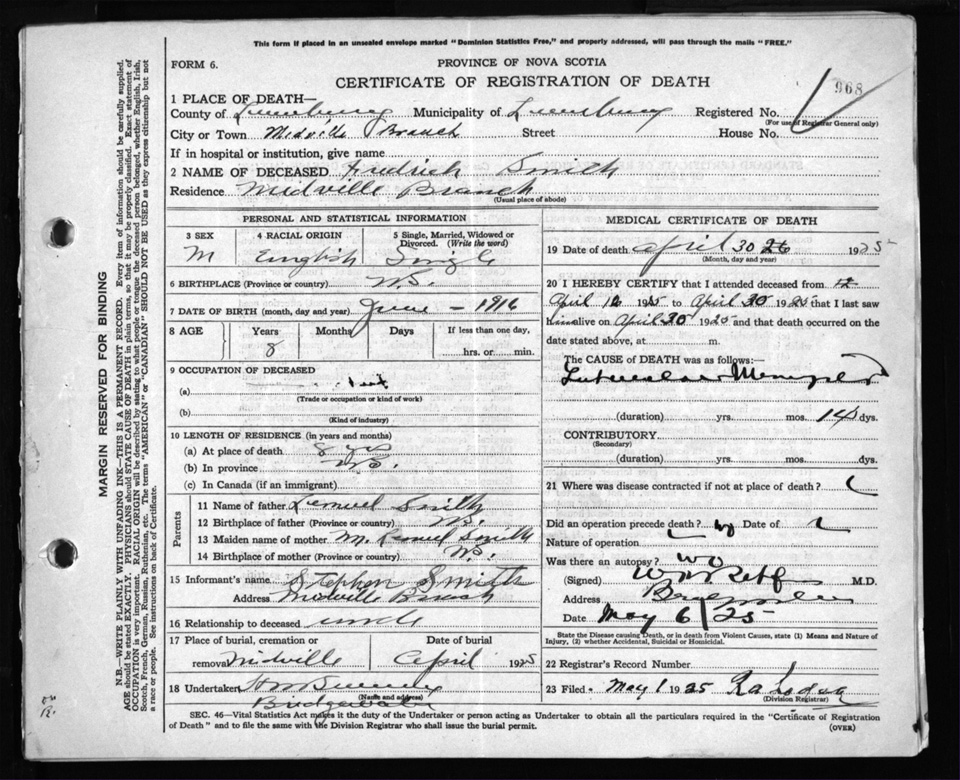 This form if placed in an unsealed envelope marked "Dominion Statistics Free," and properly addressed, will pass through the mails "FREE."
FORM 6.
PROVINCE OF NOVA SCOTIA
CERTIFICATE OF REGISTRATION OF DEATH
968
1 PLACE OF DEATH—
County of Lunenburg Municipality of Lunenburg Registered No.
(For use of Registrar General only)
City or Town Midville Branch Street House No.
If in hospital or institution, give name
2 NAME OF DECEASED Fredrick Smith
Residence Midville Branch
(Usual place of abode)
PERSONAL AND STATISTICAL INFORMATION
3 SEX
M
4 RACIAL ORIGIN
English
5 Single, Married, Widowed or Divorced. (Write the word)
Single
6 BIRTHPLACE (Province or country) N.S.
7 DATE OF BIRTH (month, day and year) June — 1916
8 AGE Years Months Days If less than one day,
8 hrs. or min.
9 OCCUPATION OF DECEASED
(a)
(Trade or occupation or kind of work)
(b)
(Kind of industry)
10 LENGTH OF RESIDENCE (in years and months)
(a) At place of death 8 yrs
(b) In province N.S.
(c) In Canada (if an immigrant)
Parents
11 Name of father Lemuel Smith
12 Birthplace of father (Province or country) N.S.
13 Maiden name of mother M. Lemuel Smith
14 Birthplace of mother (Province or country) N.S.
15 Informant's name Stephen Smith
Address Midville Branch
16 Relationship to deceased uncle
17 Place of burial, cremation or removal Midville
Date of burial
April 1925
18 Undertaker
(Name and address)
Bridgewater
MEDICAL CERTIFICATE OF DEATH
19 Date of death April 30 26 1925
(Month, day and year)
20 I HEREBY CERTIFY that I attended deceased from 12
April 12 1925 to April 30 1925 that I last saw
him alive on April 30 1925 and that death occurred on the
date stated above, at m.
The CAUSE OF DEATH was as follows:
Tubercular Meningitis
(duration) yrs. mos. 14 dys.
CONTRIBUTORY
(Secondary)
(duration) yrs. mos. dys.
21 Where was disease contracted if not at place of death?
Did an operation precede death? no Date of
Nature of operation
Was there an autopsy? no
(Signed) M.D.
Address Bridgewater
Date May 6/25
State the Disease causing Death, or in death from Violent Causes, state (1) Means and Nature of Injury, (2) whether Accidental, Suicidal or Homicidal.
22 Registrar's Record Number
23 Filed May 1 1925
(Division Registrar)
SEC. 46—Vital Statistics Act makes it the duty of the Undertaker or person acting as Undertaker to obtain all the particulars required in the "Certificate of Registration
of Death" and to file the same with the Division Registrar who shall issue the burial permit.
(OVER)
MARGIN RESERVED FOR BINDING
N.B.—WRITE PLAINLY WITH UNFADING INK—THIS IS A PERMANENT RECORD. Every item of information should be carefully supplied.
AGE should be stated EXACTLY. PHYSICIANS should STATE CAUSE OF DEATH in plain terms, so that it may be properly classified. Exact statement of
OCCUPATION is very important. RACIAL ORIGIN will be described by stating to what people or tongue the deceased person belonged, whether English, Irish,
Scotch, French, German, Russian, Ruthenian, etc. The terms "AMERICAN" or "CANADIAN" SHOULD NOT BE USED as they express citizenship but not
a race or people. See instructions on back of Certificate.